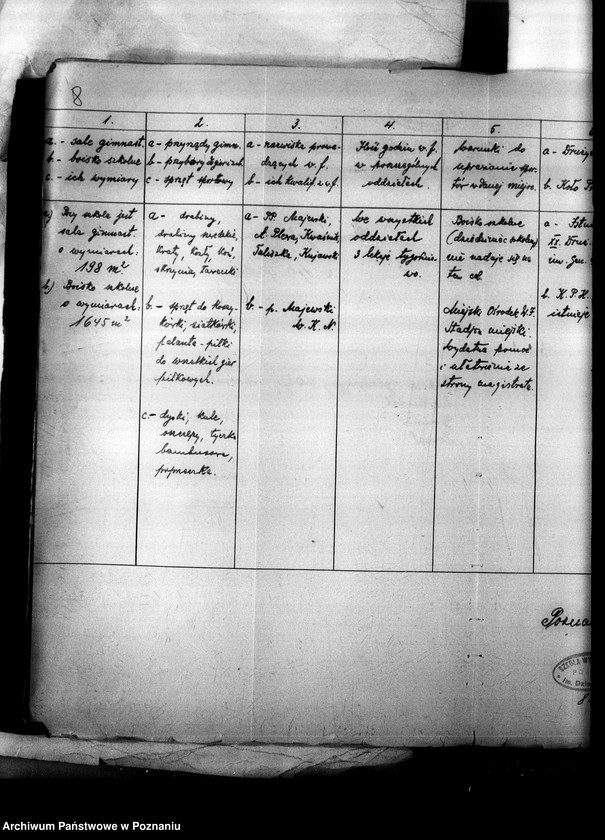 8
1.
a. - sale gimnast.
b. - boisko szkolne
c. - ich wymiary
2.
a - przyrządy gimn.
b - przybory do gier i zab.
c - sprzęt sportowy
3.
a - nazwiska prowa-
dzących w. f.
b - ich kwalif. z w. f.
4.
Ilość godzin w. f.
w poszczególnych
oddziałach.
5.
Warunki do
uprawiania spor-
tów w danej miejsc.
a -
b. Koło
a) Przy szkole jest
sala gimnast.
o wymiarach:
198 m²
b) Boisko szkolne
o wymiarach:
1645 m²
a - drabiny,
drabiny szwedzkie,
kraty, kozły, koń,
skrzynia, ławeczki
b. - sprzęt do koszy-
kówki, siatkówki,
palanta - piłki
do wszelkich gier
piłkowych.
c. - dyski, kule,
oszczepy, tyczka
bambusowa,
poprzeczka.
a - PP. Majewski,
Taliszka, Kujawski
b. - p. Majewski
We wszystkich
oddziałach
3 lekcje tygodnio-
wo.
Boisko szkolne
(dziedziniec szkolny)
nie nadaje się na
ten cel.
Miejski Ośrodek W. F.
Stadjon miejski.
Wydatna pomoc
i ułatwienie ze
strony magistratu.
a.
im. Gen.
b. K. P. W.
istnieje
Pozna
SZKOŁA
im.
8
Archiwum Państwowe w Poznaniu